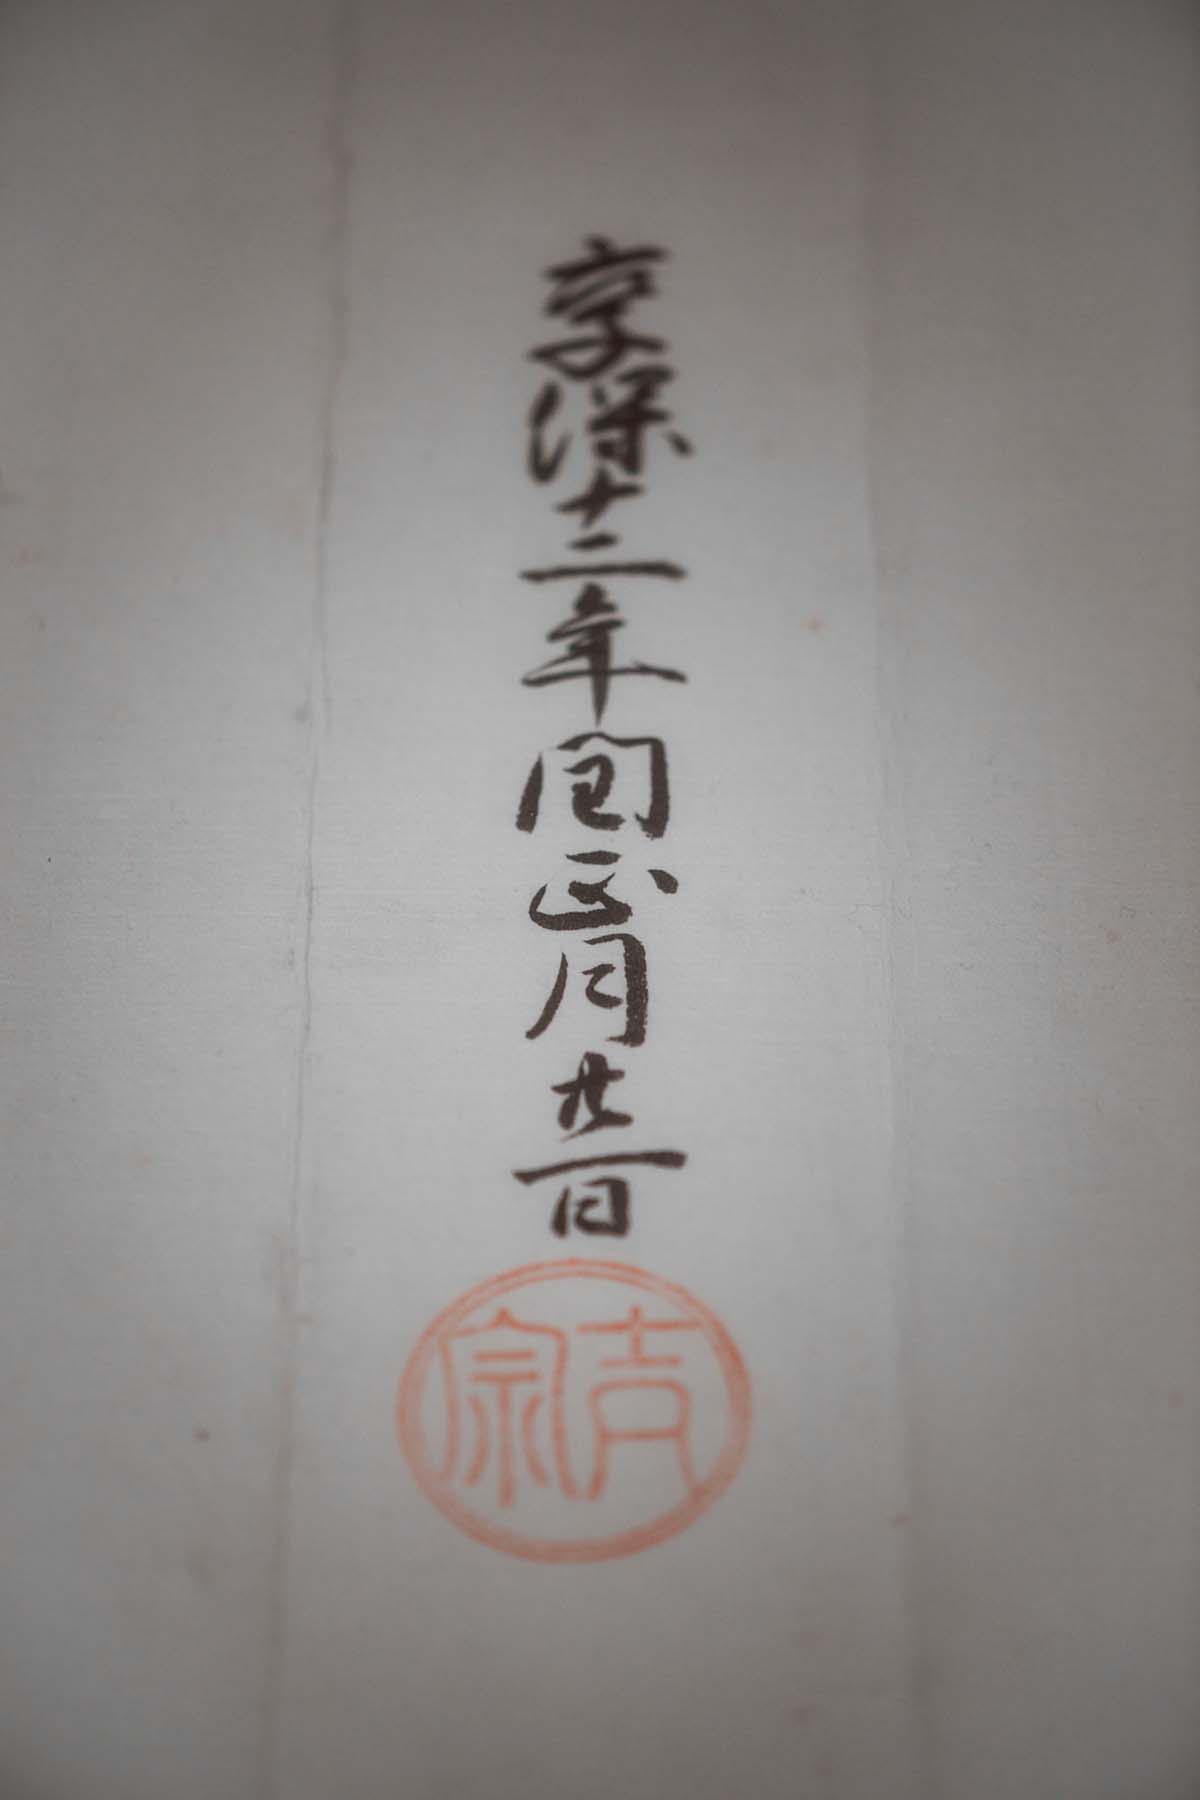 享保十二年閏正月廿一日
吉宗